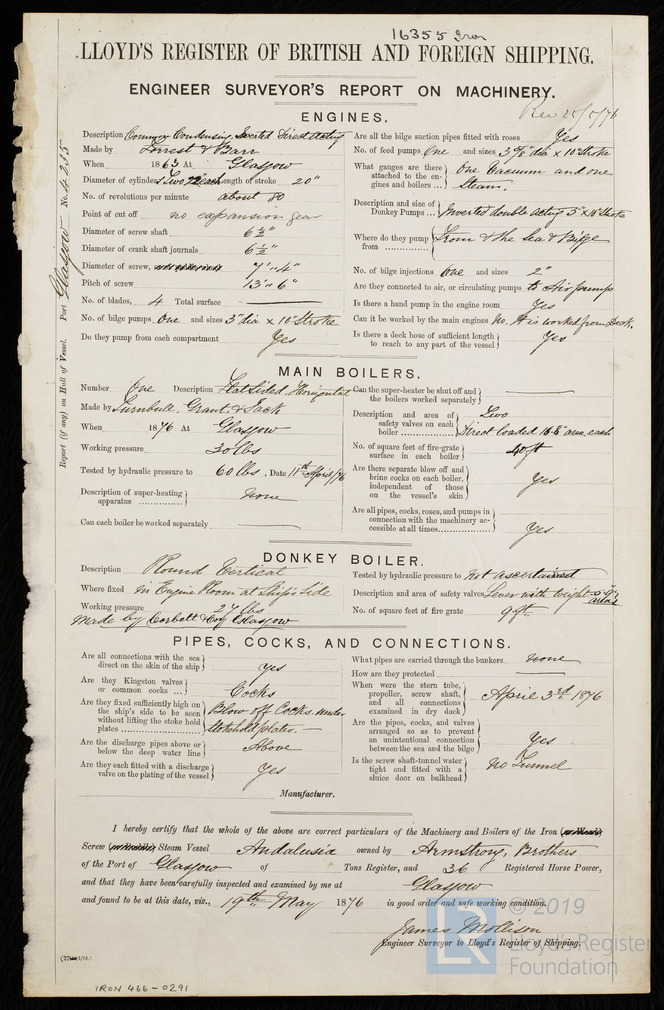 16355 Iron
LLOYD'S REGISTER OF BRITISH AND FOREIGN SHIPPING.
ENGINEER SURVEYOR'S REPORT ON MACHINERY.
Rec 25/5/76
Report (if any) on Hull of Vessel. Port Glasgow No. 4235
ENGINES.
Description Compr Condensing, Inverted Direct Acting
Made by Forrest & Barr
When 1863 At Glasgow
Diameter of cylinders Two each Length of stroke 20"
No. of revolutions per minute about 80
Point of cut off no expansion gear
Diameter of screw shaft 6½"
Diameter of crank shaft journals 6½"
Diameter of screw, 7' 4"
Pitch of screw 13' 6"
No. of blades, 4 Total surface
No. of bilge pumps One and sizes 3" dia x 10" Stroke
Do they pump from each compartment Yes
Are all the bilge suction pipes fitted with roses Yes
No. of feed pumps One and sizes dia x 10" Stroke
What gauges are there attached to the engines and boilers ... One Vacuum and one
Steam.
Description and size of Donkey Pumps ... Inverted double acting 3" x 10" Stroke
Where do they pump from From & the Sea & Bilge
No. of bilge injections One and sizes 2"
Are they connected to air, or circulating pumps to Air pump
Is there a hand pump in the engine room Yes
Can it be worked by the main engines No. It is worked from Deck.
Is there a deck hose of sufficient length to reach to any part of the vessel Yes
MAIN BOILERS.
Number One Description Flat Sided Horizontal
Made by Turnbull, Grant & Jack
When 1876 At Glasgow
Working pressure 30 lbs
Tested by hydraulic pressure to 60 lbs. Date 11th April/76
Description of super-heating apparatus None
Can each boiler be worked separately
Can the super-heater be shut off and the boilers worked separately
Description and area of safety valves on each boiler Two
Direct loaded area each
No. of square feet of fire-grate surface in each boiler 40 ft
Are there separate blow off and brine cocks on each boiler, independent of those on the vessel's skin Yes
Are all pipes, cocks, roses, and pumps in connection with the machinery accessible at all times Yes
DONKEY BOILER.
Description Round Vertical
Where fixed in Engine Room at Ship's Side
Working pressure 27 lbs
Made by Corbett & Coy Glasgow
Tested by hydraulic pressure to not ascertained
Description and area of safety valves Lever with weight
No. of square feet of fire grate 9 ft
PIPES, COCKS, AND CONNECTIONS.
Are all connections with the sea direct on the skin of the ship Yes
Are they Kingston valves or common cocks ... Cocks
Are they fixed sufficiently high on the ship's side to be seen without lifting the stoke hold plates Blow off Cocks under
stokehold plates.
Are the discharge pipes above or below the deep water line Above
Are they each fitted with a discharge valve on the plating of the vessel Yes
What pipes are carried through the bunkers None
How are they protected
When were the stern tube, propeller, screw shaft, and all connections examined in dry dock April 3rd 1876
Are the pipes, cocks, and valves arranged so as to prevent an unintentional connection between the sea and the bilge Yes
Is the screw shaft-tunnel water tight and fitted with a sluice door on bulkhead no Tunnel
Manufacturer.
I hereby certify that the whole of the above are correct particulars of the Machinery and Boilers of the Iron (or Wood)
Screw (or Paddle) Steam Vessel Andalusia owned by Armstrong, Brothers
of the Port of Glasgow of Tons Register, and 36 Registered Horse Power,
and that they have been carefully inspected and examined by me at Glasgow
and found to be at this date, viz., 19th May 1876 in good order and safe working condition.
James Mollison
Engineer Surveyor to Lloyd's Register of Shipping.
IRON 466-0291
LR
© 2019
Lloyd's Register
Foundation